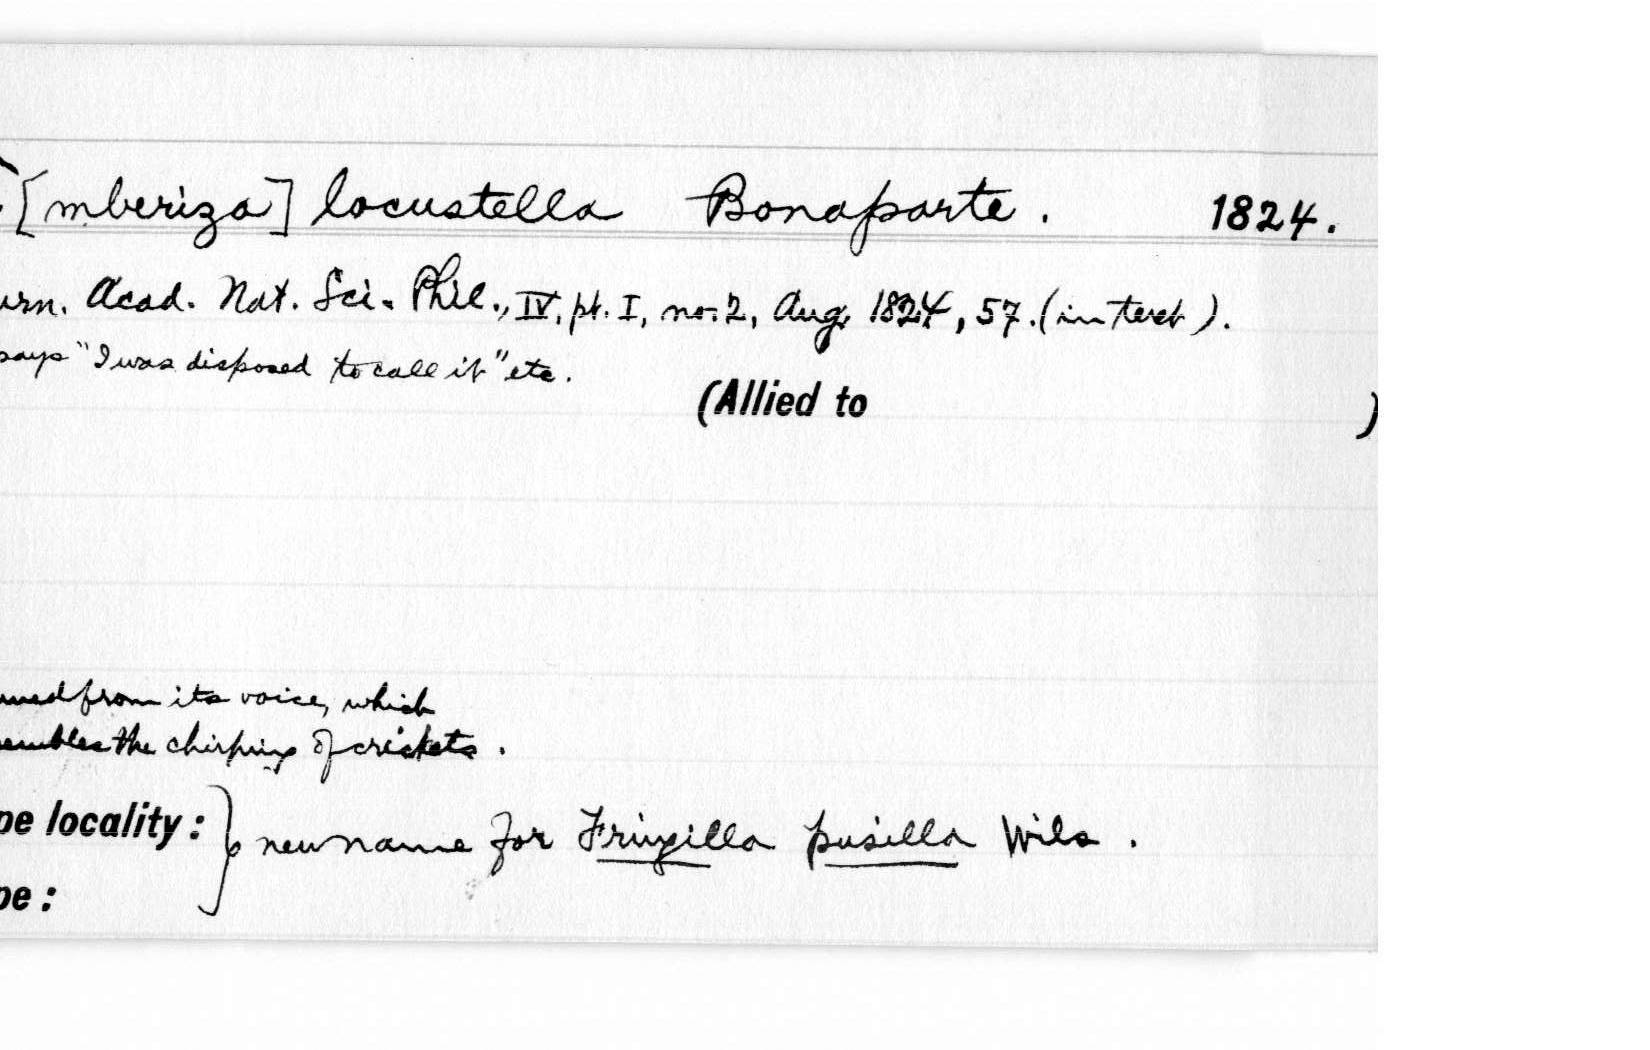 [mberiza] locustella Bonaparte. 1824.
urn. Acad. Nat. Sci. Phil., IV, pt. I, no. 2, Aug. 1824, 57. (in text).
says "I was disposed to call it" etc.
(Allied to )
named from its voice, which
sembles the chirping of crickets.
pe locality: } new name for Fringilla pusilla Wils.
pe: